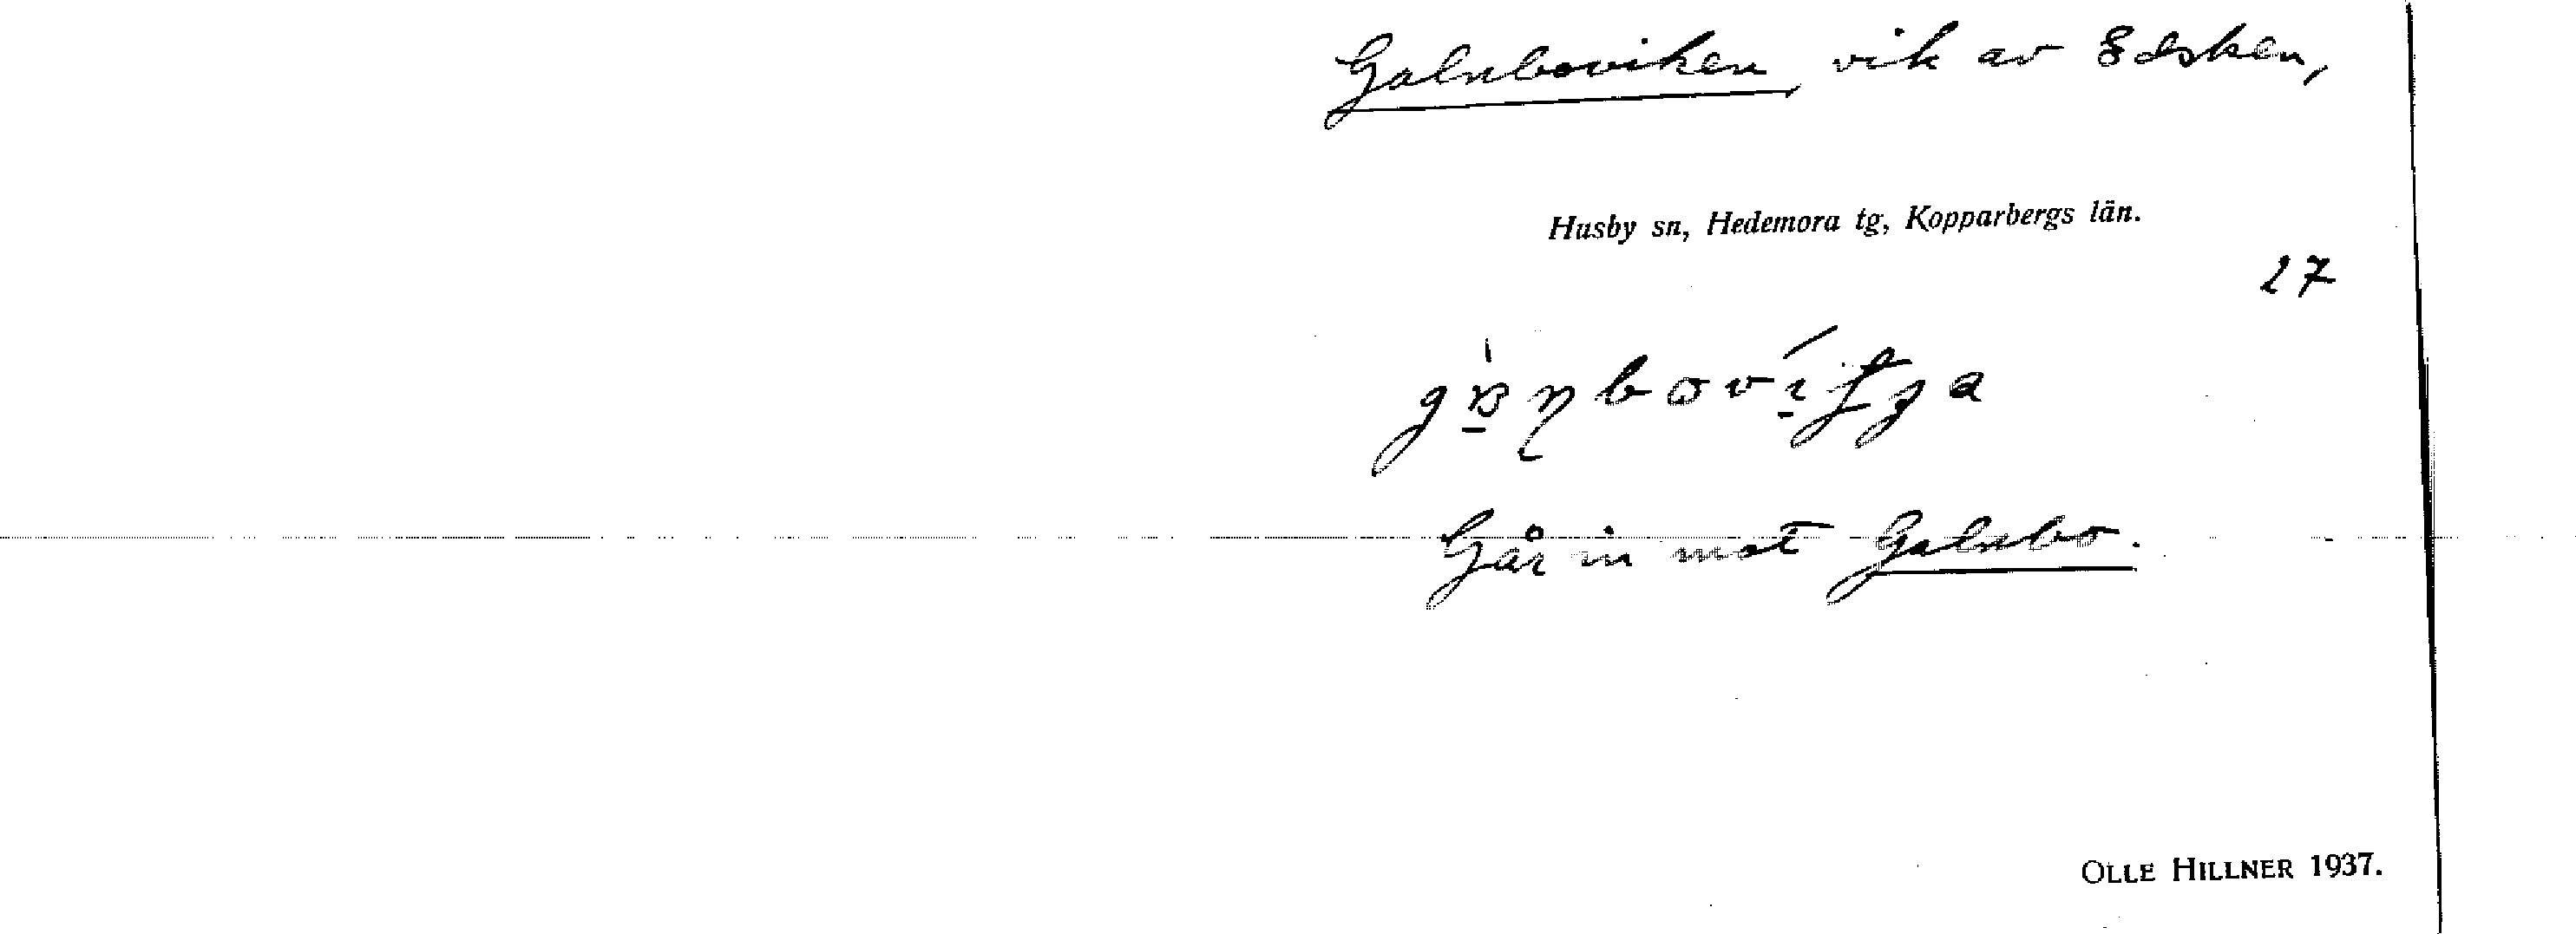 Galnboviken, vik av Edsken,
Husby sn, Hedemora tg, Kopparbergs län.
27
Går in mot Galnbo.
OLLE HILLNER 1937.